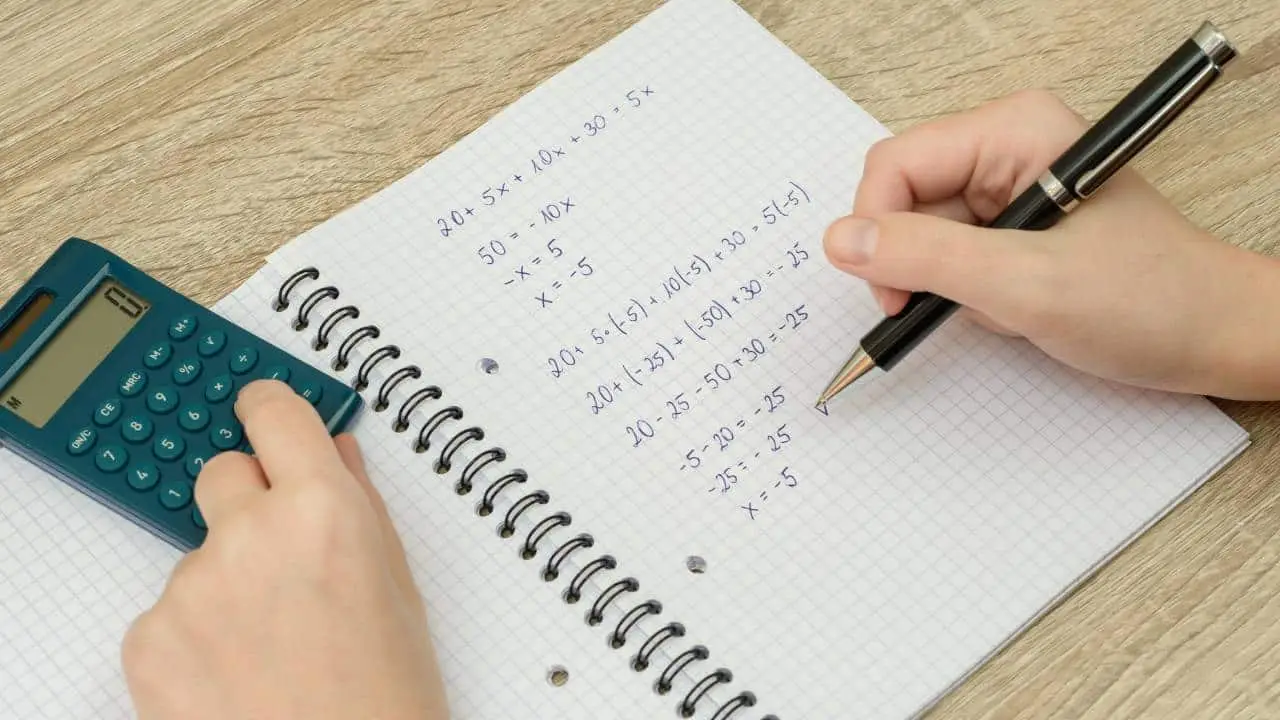 20 + 5x + 10x + 30 = 5x
50 = -10x
-x = 5
x = -5
20 + 5·(-5) + 10(-5) + 30 = 5(-5)
20 + (-25) + (-50) + 30 = -25
20 - 25 - 50 + 30 = -25
-5 - 20 = -25
-25 = -25
x = -5
M
M+ √ ÷
M- % ×
MRC 9 6 3
CE 8 5 2
ON/C 7 4 1